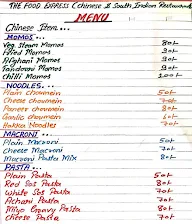 THE FOOD EXPRESS (Chinese & South Indian Restaurant
MENU
Chinese Item...
MOMOS...
Veg Steam Momos 50/-
Fried Momos 60/-
Afghani Momos 90/-
Tandoori Momos 90/-
Chilli Momos 100/-
NOODLES...
Plain Chowmein 50/-
Cheese Chowmein 70/-
Paneer Chowmein 80/-
Garlic Chowmein 60/-
Hakka Noodles 70/-
MACRONI...
Plain Macroni 50/-
Cheese Macroni 70/-
Macroni Pasta Mix 80/-
PASTA...
Plain Pasta 50/-
Red Sos Pasta 80/-
White Sos Pasta 70/-
Achari Pasta 70/-
Mayo Gravy Pasta 80/-
Cheese Pasta 70/-